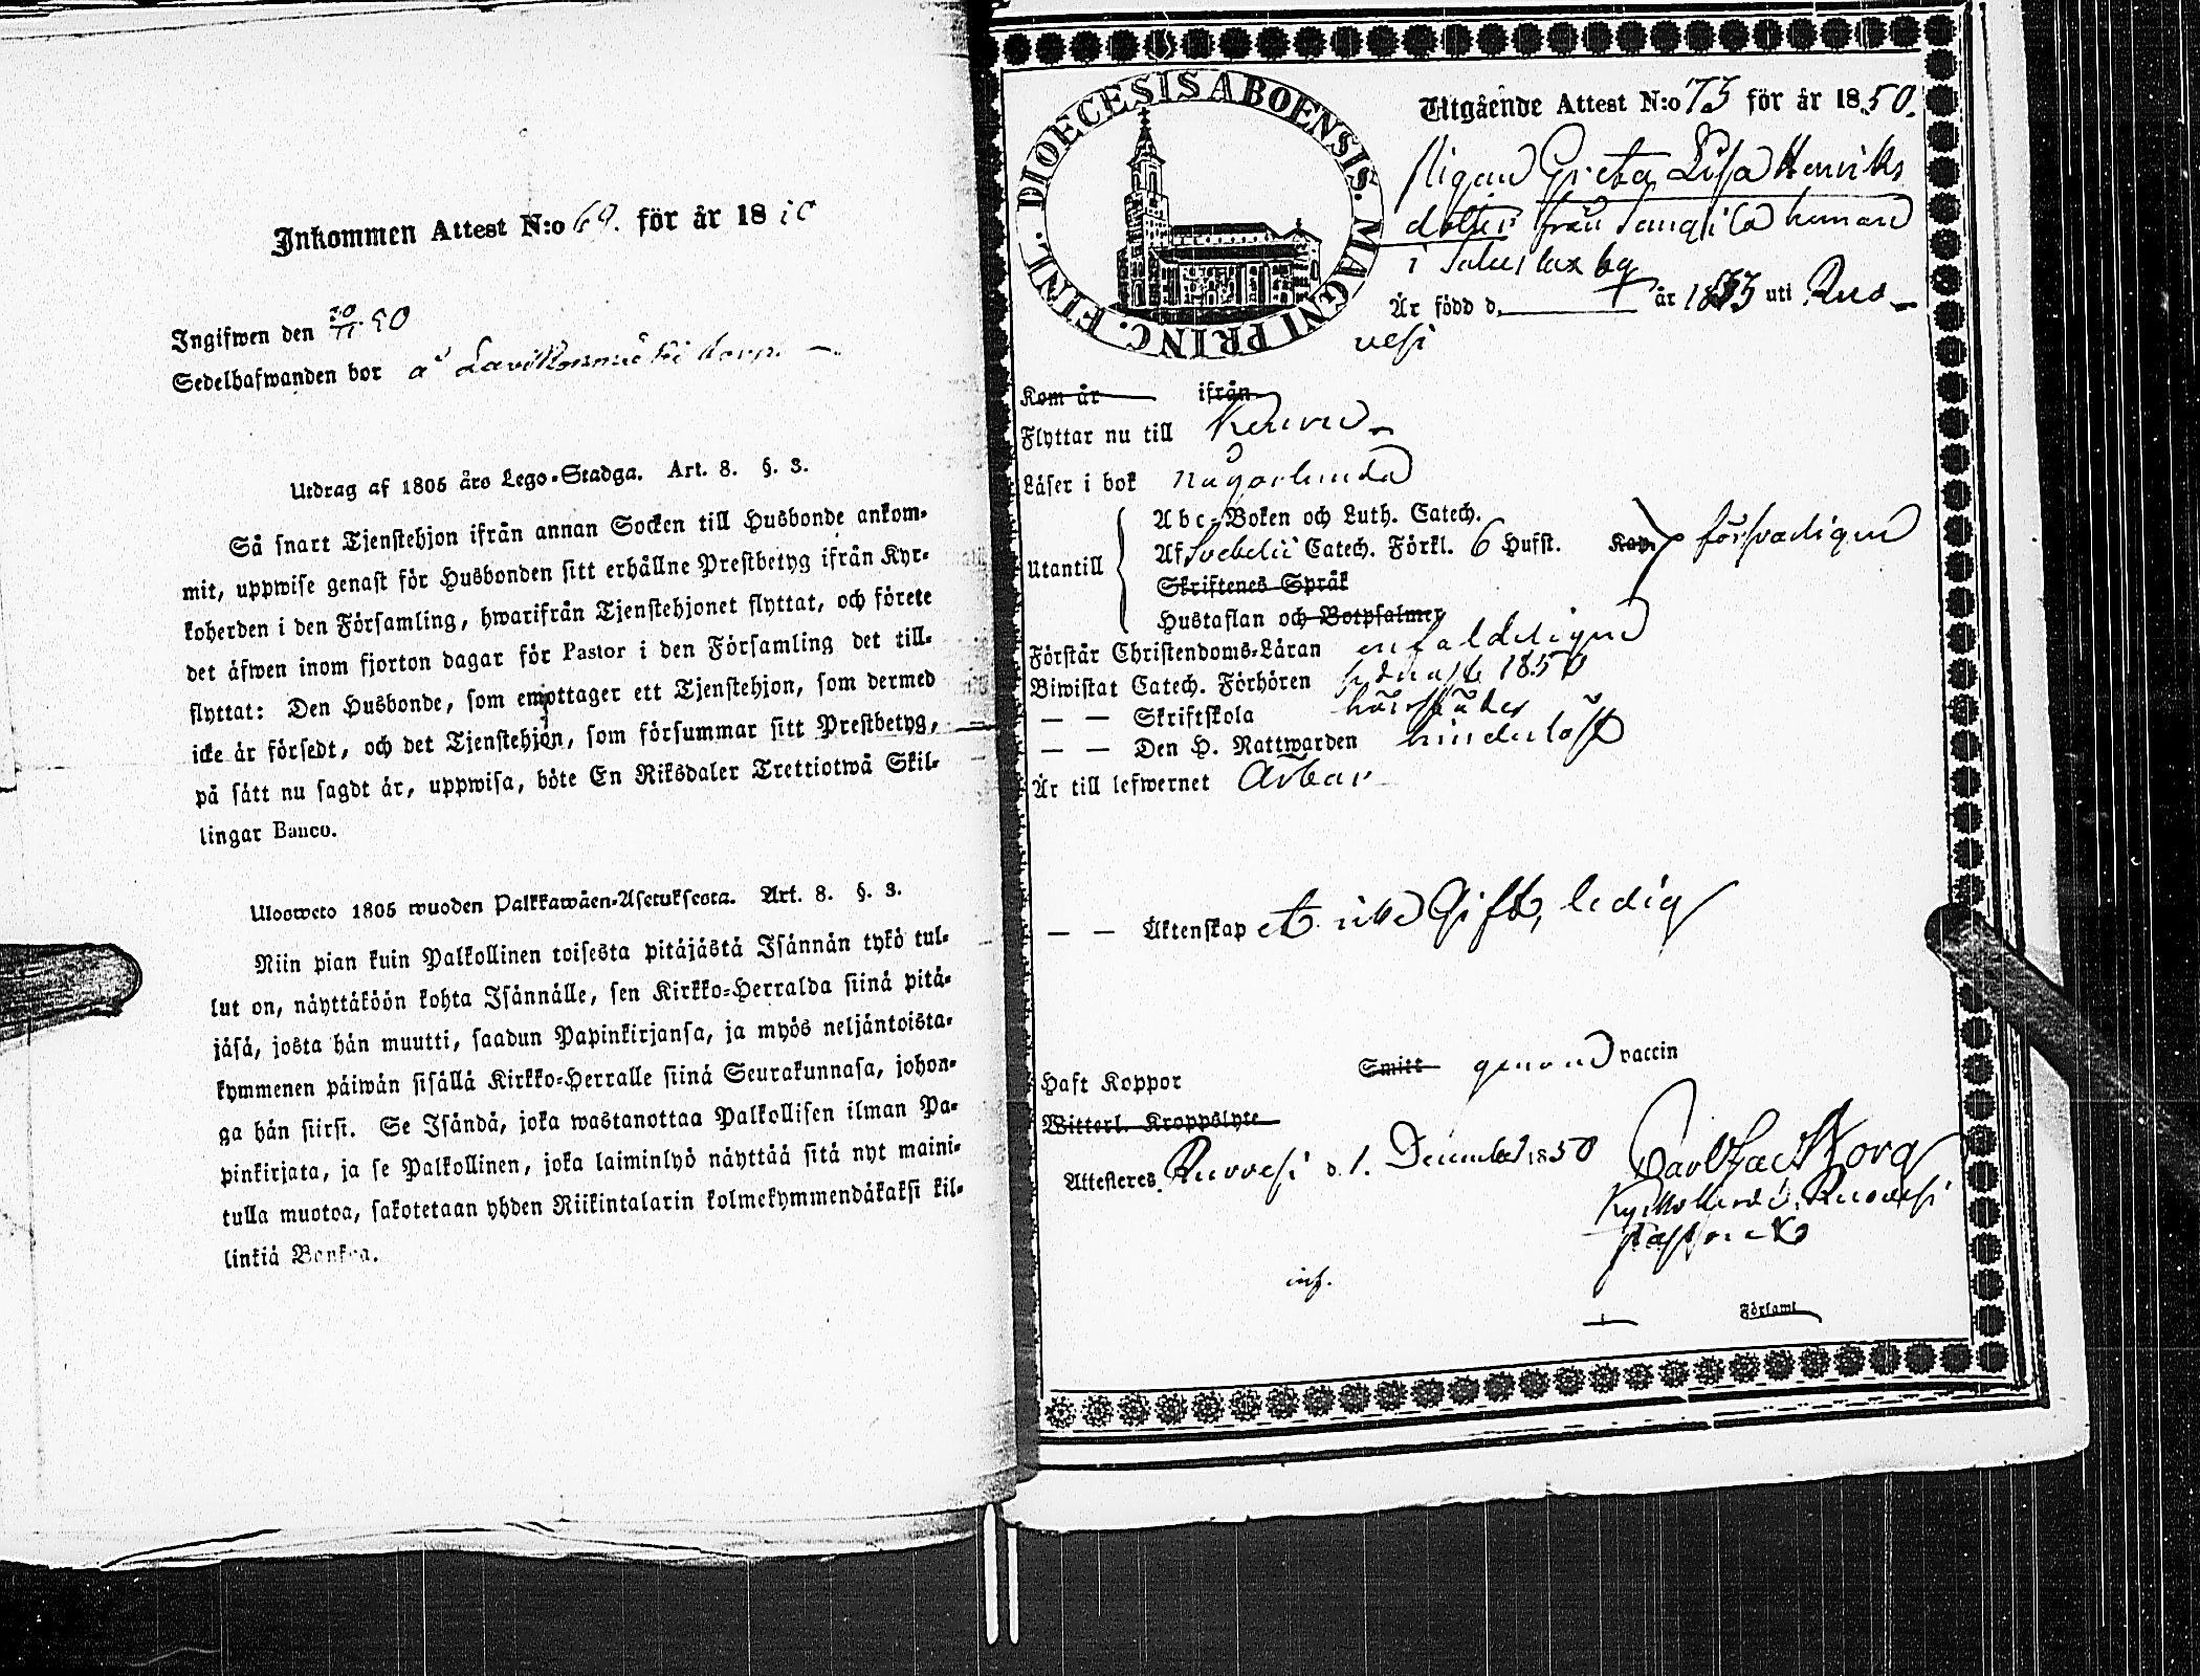 Inkommen Attest N:o 69. för år 1850
Ingifwen den 50
Sedelhafwanden bor å
Utdrag af 1805 års Lego-Stadga. Art. 8. §. 3.
Så snart Tjenstehjon ifrån annan Socken till Husbonde ankom-
mit, uppwise genast för Husbonden sitt erhållne Prestbetyg ifrån Kyr-
koherden i den Församling, hwarifrån Tjenstehjonet flyttat, och förete
det äfwen inom fjorton dagar för Pastor i den Församling det till-
flyttat: Den Husbonde, som emottager ett Tjenstehjon, som dermed
icke är försedt, och det Tjenstehjon, som försummar sitt Prestbetyg,
på sätt nu sagdt är, uppwisa, böte En Riksdaler Trettiotwå Skil-
lingar Banco.
Ulosweto 1805 wuoden Palkkawäen-Asetuksesta. Art. 8. §. 3.
Niin pian kuin Palkollinen toisesta pitäjästä Isännän tykö tul-
lut on, näyttäköön kohta Isännälle, sen Kirkko-Herralda siinä pitä-
jäsä, josta hän muutti, saadun Papinkirjansa, ja myös neljäntoista-
kymmenen päiwän sisällä Kirkko-Herralle siinä Seurakunnasa, johon-
ga hän siirsi. Se Isändä, joka wastanottaa Palkollisen ilman Pa-
pinkirjata, ja se Palkollinen, joka laiminlyö näyttää sitä nyt maini-
tulla muotoa, sakotetaan yhden Riikintalarin kolmekymmendäkaksi kil-
linkiä Bankoa.
DIOECESIS ABOENSIS. MAGNI PRINC. FINL.
Utgående Attest N:o 75 för år 1850.
Pigan Greta Lisa Henriks
dotter från heman
i by
Är född d. år 1833 uti Ruo-
vesi
Kom år ifrån
Flyttar nu till Keuru
Läser i bok någorlunda
Utantill
Abc-Boken och Luth. Catech.
Af Svebelii Catech. Förkl. 6 Hufst. Kap. försvarligen
Skriftenes Språk
Hustaflan och Botpsalmer
Förstår Christendoms-Läran enfaldeligen
Biwistat Catech. Förhören sednast 1850
— — Skriftskola
— — Den H. Nattwarden hinderlöst
Är till lefwernet Ärbar
— — Äktenskapet icke Gift, ledig
Haft Koppor Smitt genom vaccin
Witterl. Kroppslyte
Attesteres, Ruovesi d. 1. December 1850
Kyrkoherde i Ruovesi
Pastorat
Församl.